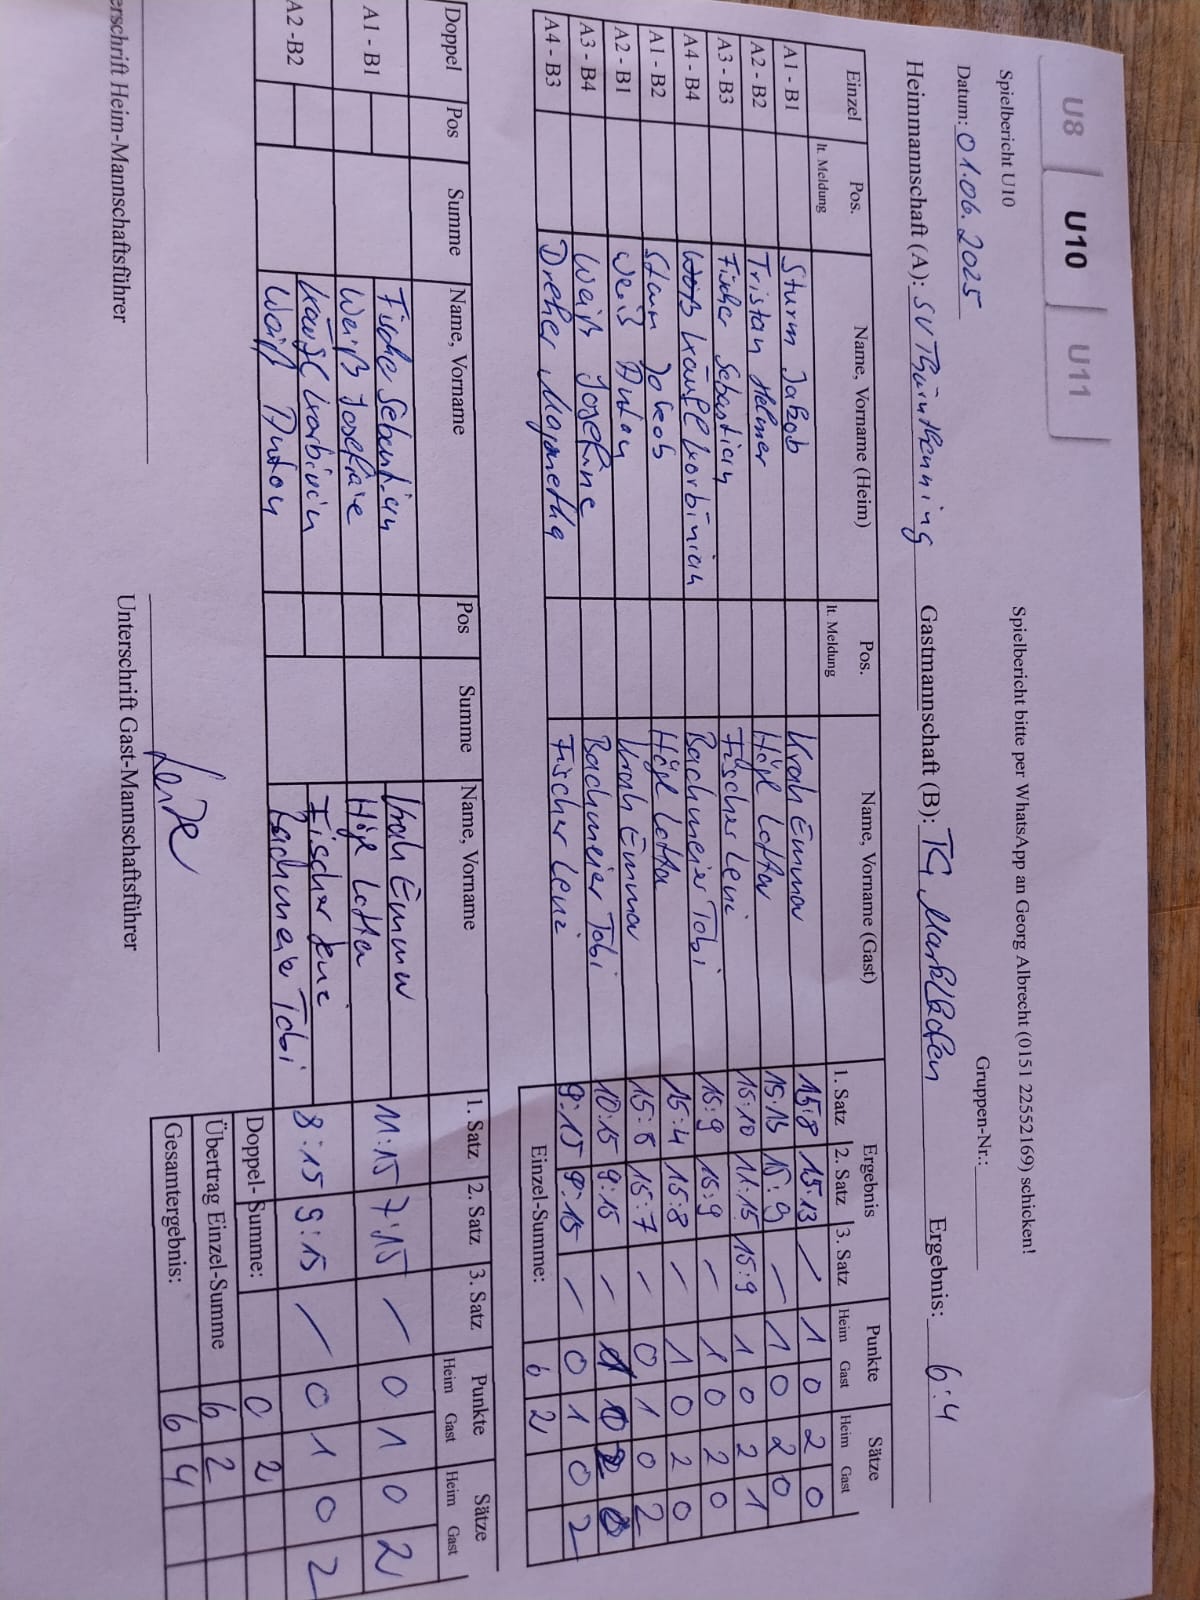 U8 U10 U11
Spielbericht U10 Spielbericht bitte per WhatsApp an Georg Albrecht (0151 22552169) schicken!
Datum: 01.06.2025 Gruppen-Nr.:
Heimmannschaft (A): SV Thürnthenning Gastmannschaft (B): TC Marklkofen Ergebnis: 6:4
Einzel Pos. Name, Vorname (Heim) Pos. Name, Vorname (Gast) Ergebnis Punkte Sätze
lt. Meldung lt. Meldung 1. Satz 2. Satz 3. Satz Heim Gast Heim Gast
A1 - B1 Sturm Jakob Krah Emma 15:8 15:13 / 1 0 2 0
A2 - B2 Tristan Helmer Högl Lotta 15:13 15:9 – 1 0 2 0
A3 - B3 Fischer Sebastian Fischer Leni 15:10 11:15 15:9 1 0 2 1
A4 - B4 Käufl Korbinian Bachmeier Tobi 15:9 15:9 – 1 0 2 0
A1 - B2 Sturm Jakob Högl Lotta 15:4 15:8 – 1 0 2 0
A2 - B1 Weiß Anton Krah Emma 15:7 – 0 1 0 2
A3 - B4 Weiß Josefine Bachmeier Tobi 10:15 9:15 –
A4 - B3 Dreher Fischer Leni 9:15 9:15 – 0 1 0 2
Einzel-Summe: 6 2
Doppel Pos Summe Name, Vorname Pos Summe Name, Vorname 1. Satz 2. Satz 3. Satz Punkte Sätze
Heim Gast Heim Gast
A1 - B1 Fischer Sebastian Krah Emma 11:15 7:15 – 0 1 0 2
Weiß Josefine Högl Lotta
A2 -B2 Käufl Korbinian Fischer Leni 8:15 9:15 – 0 1 0 2
Weiß Anton Bachmeier Tobi
Doppel- Summe: 0 2
Übertrag Einzel-Summe 6 2
Gesamtergebnis: 6 4
erschrift Heim-Mannschaftsführer Unterschrift Gast-Mannschaftsführer